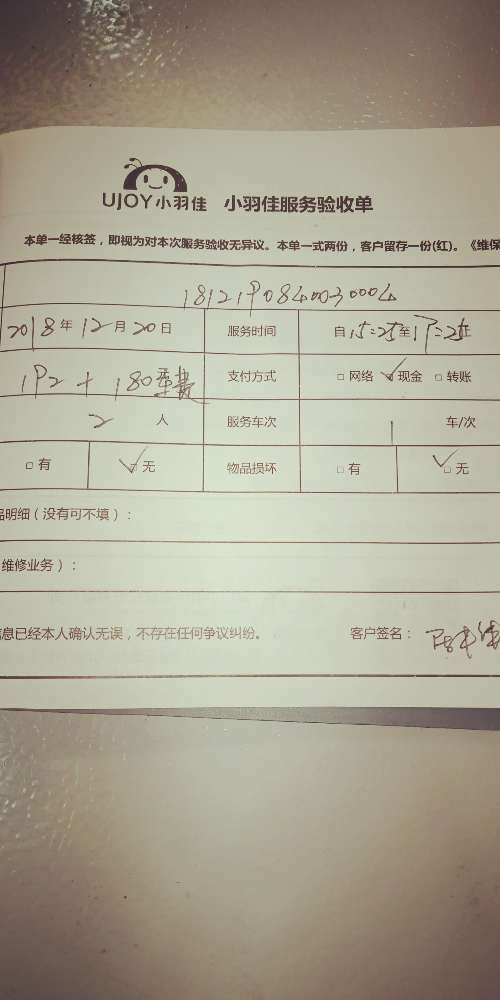 UJOY小羽佳 小羽佳服务验收单
本单一经核签，即视为对本次服务验收无异议。本单一式两份，客户留存一份(红)。《维保
1812190840030004
2018年12月20日 服务时间 自15:25至17:25止
192+180车费 支付方式 □网络 ☑现金 □转账
2人 服务车次 1车/次
□有 ☑无 物品损坏 □有 ☑无
品明细（没有可不填）：
维修业务）：
信息已经本人确认无误，不存在任何争议纠纷。 客户签名：